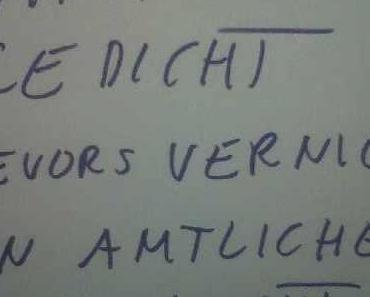 CE DICHT
EVORS VERNIC
N AMTLICHE